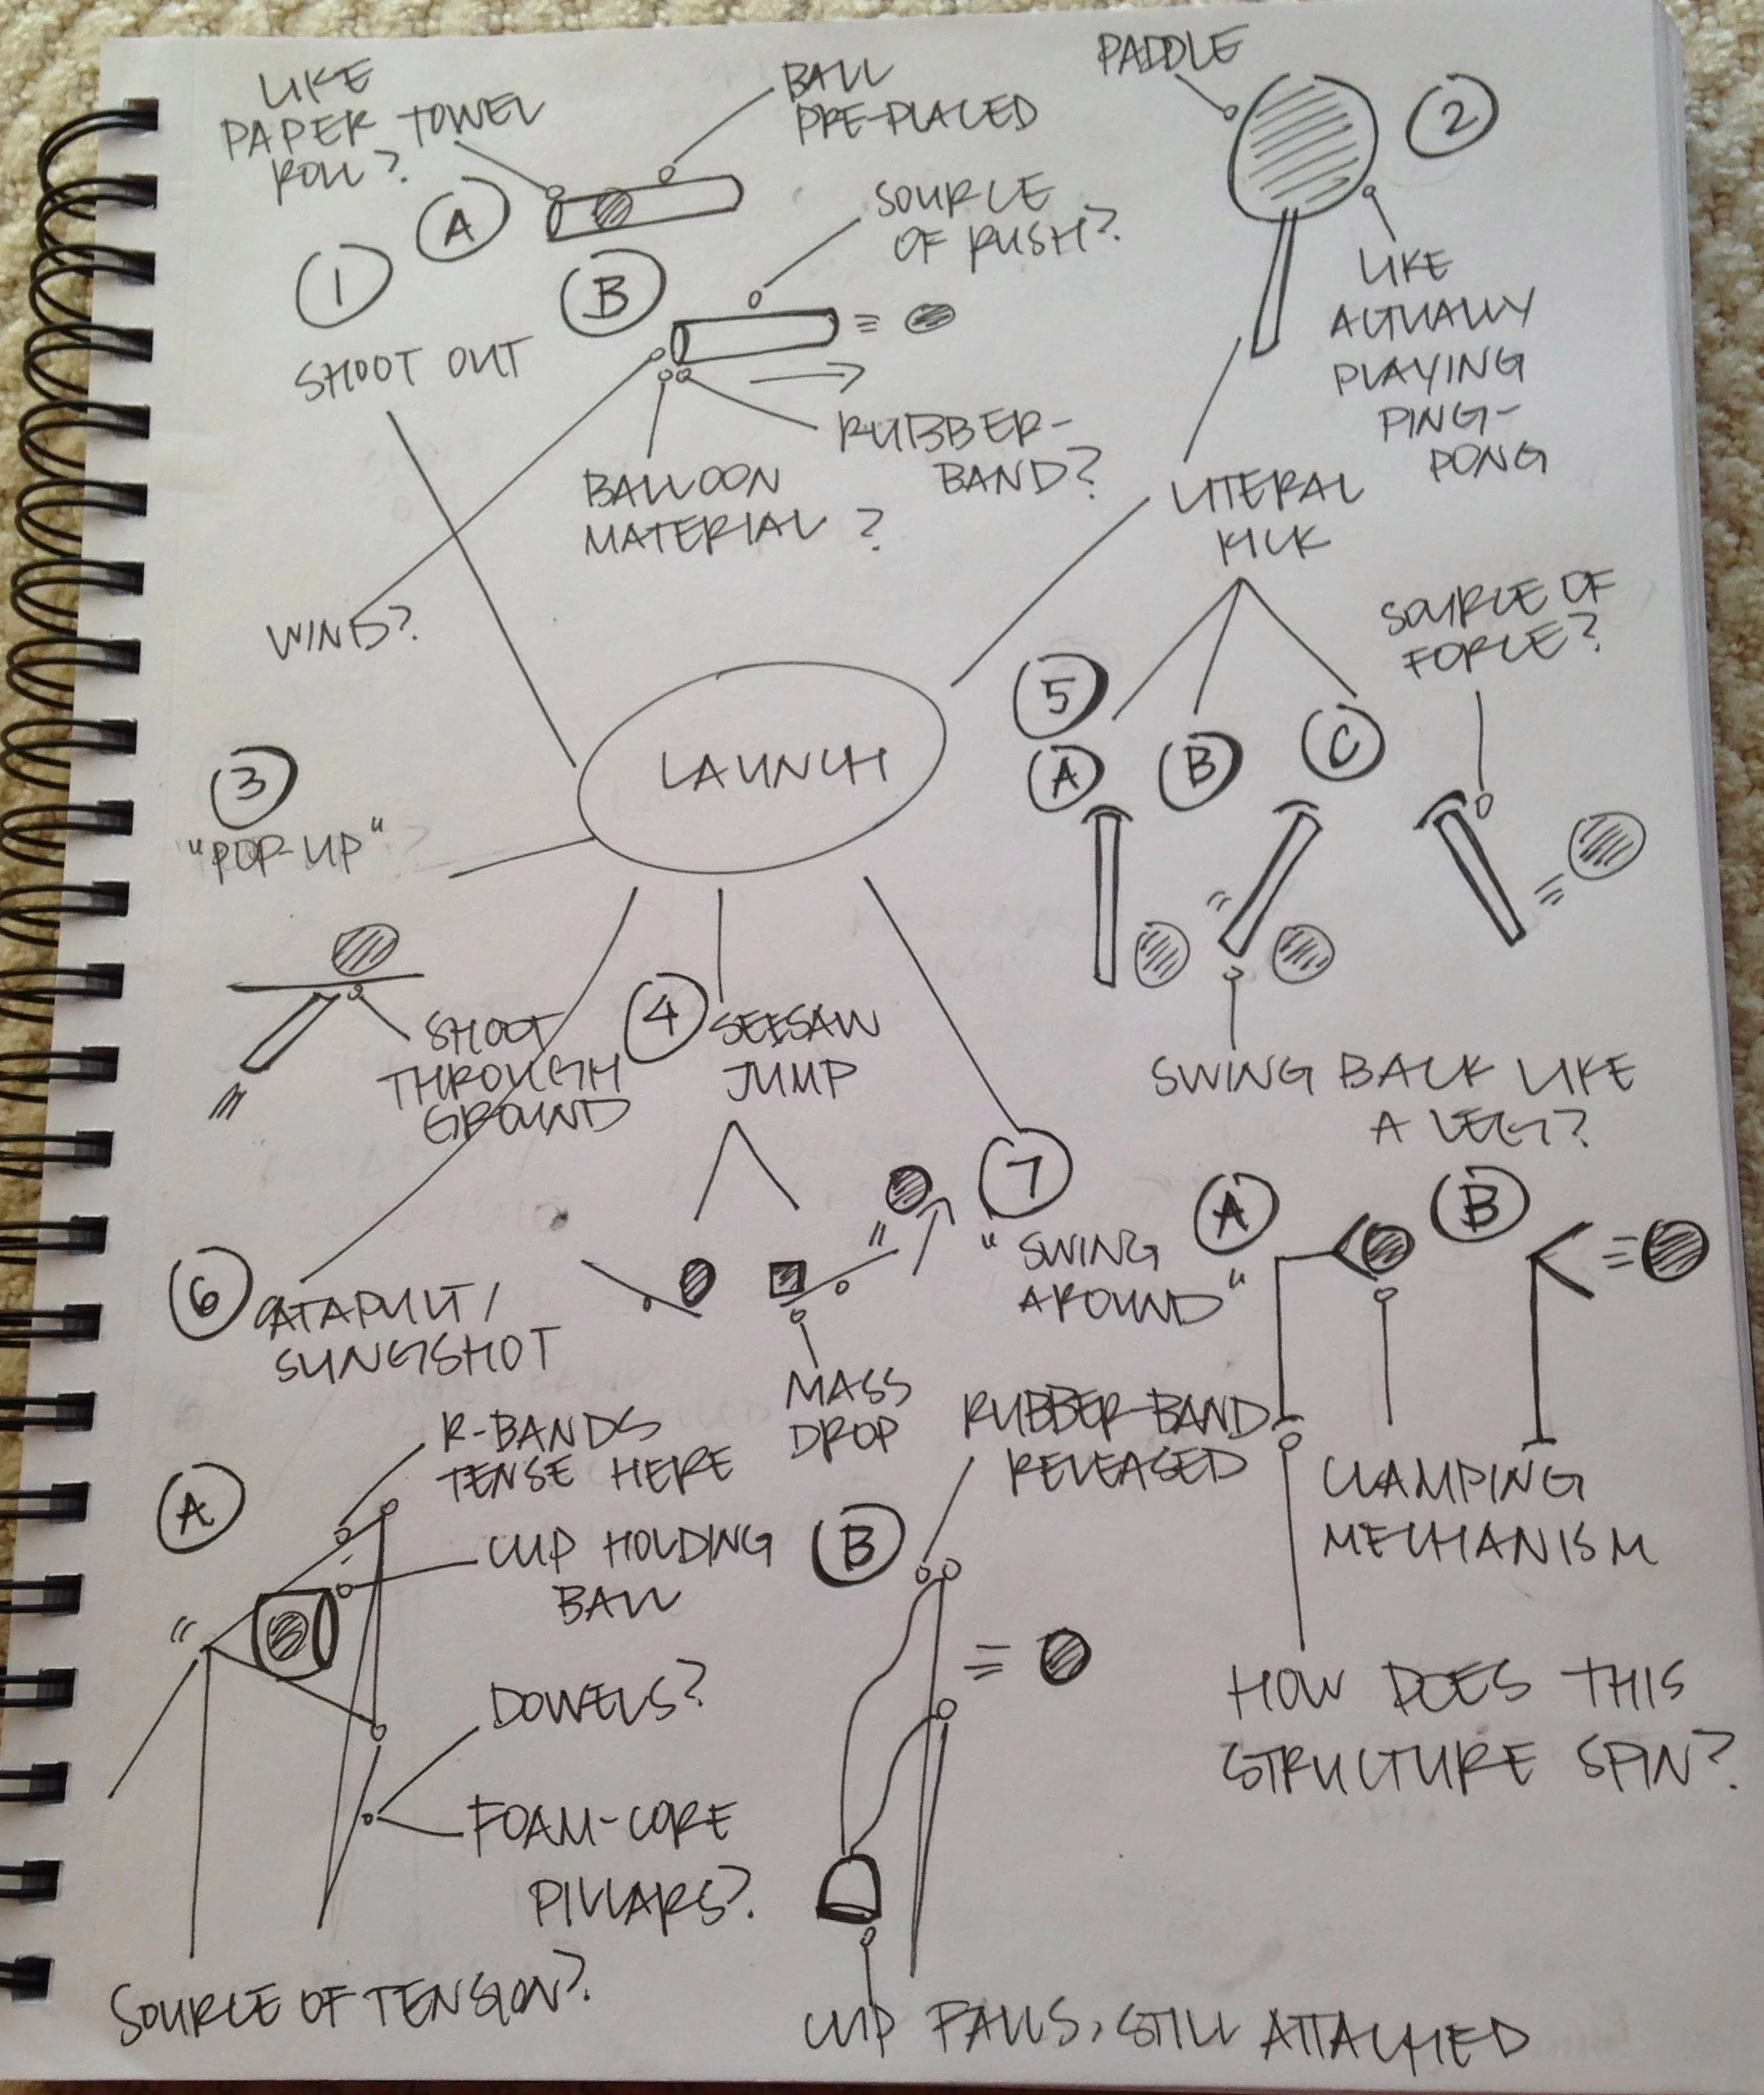 LIKE
PAPER TOWEL
ROLL?
A
BALL
PRE-PLACED
1
SHOOT OUT
B
SOURCE
OF PUSH?
RUBBER-
BAND?
BALLOON
MATERIAL?
WIND?
PADDLE
2
LIKE
ACTUALLY
PLAYING
PING-
PONG
LITERAL
KICK
LAUNCH
5
A
B
C
SOURCE OF
FORCE?
SWING BACK LIKE
A LEG?
3
"POP-UP"
SHOOT
THROUGH
GROUND
4
SEESAW
JUMP
MASS
DROP
7
"SWING
AROUND"
A
B
CLAMPING
MECHANISM
HOW DOES THIS
STRUCTURE SPIN?
6
CATAPULT/
SLINGSHOT
A
R-BANDS
TENSE HERE
CUP HOLDING
BALL
DOWELS?
FOAM-CORE
PILLARS?
SOURCE OF TENSION?
B
RUBBER-BAND
RELEASED
CUP FALLS, STILL ATTACHED